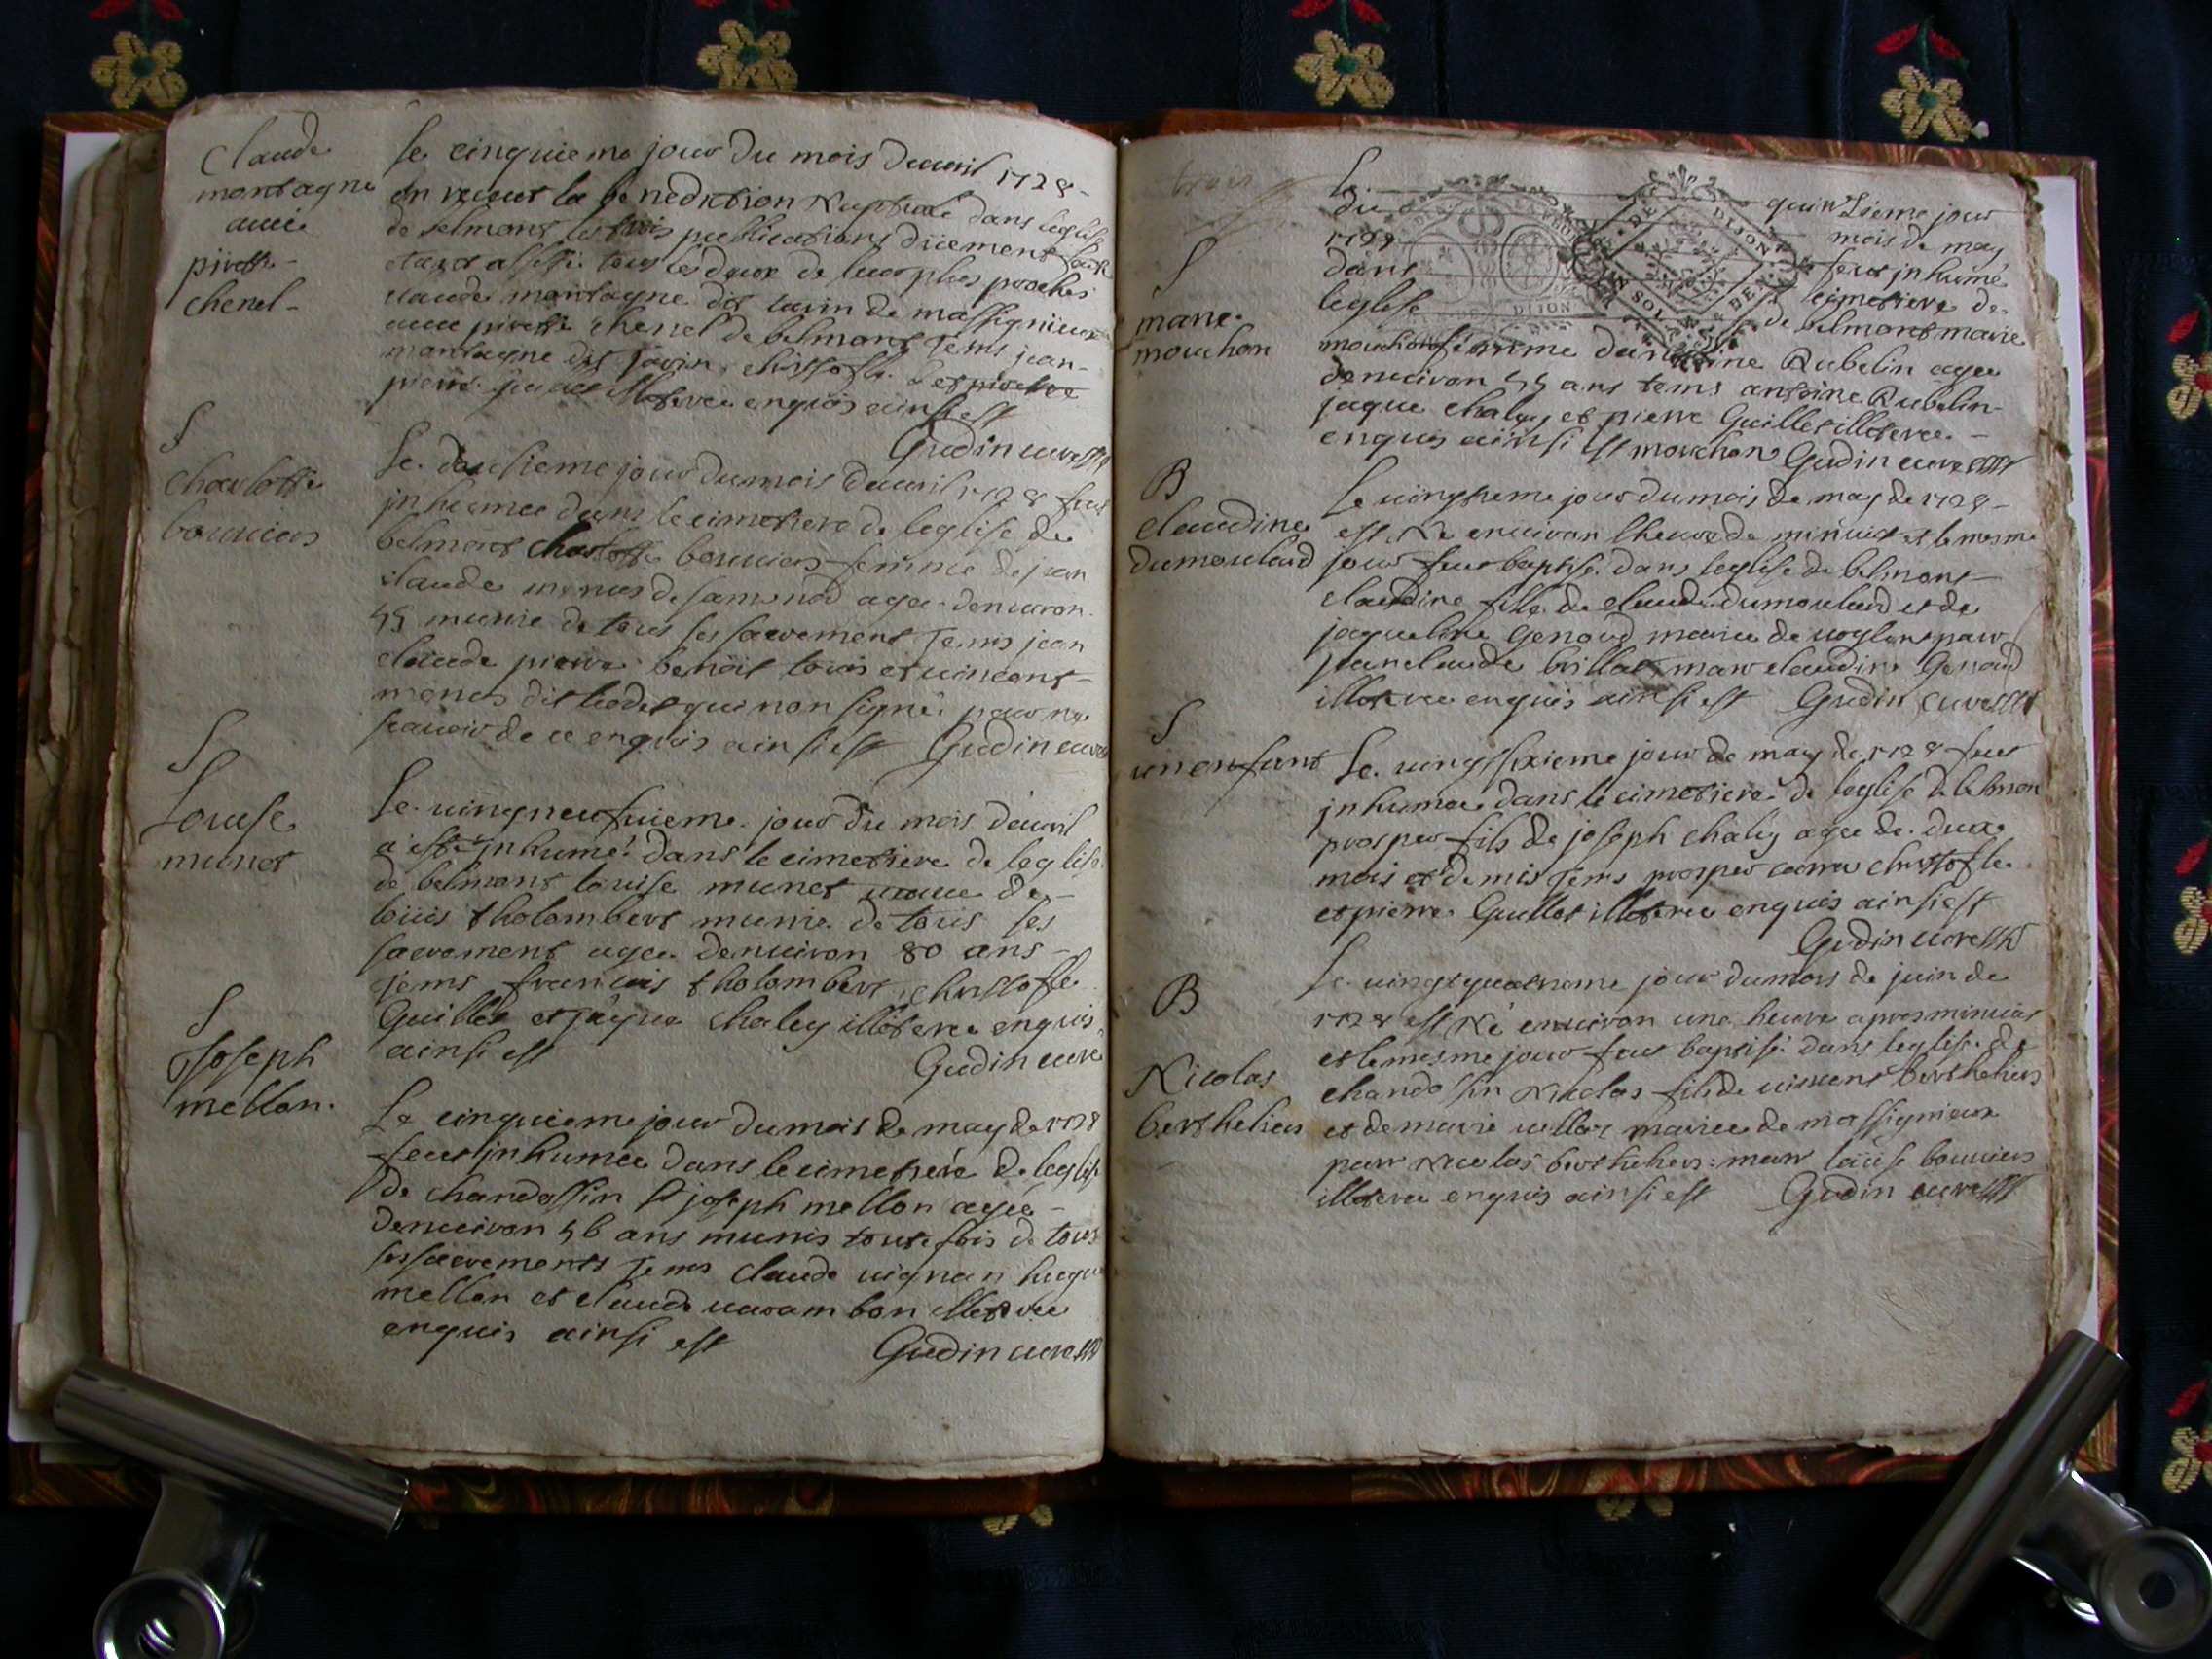 Claude
montagne
avec
pirette
chenel
le cinquieme jour du mois davril 1728
on receut la benediction Nuptiale dans leglise
de belmont les trois publications düement fait
etant assisté tous les deux de leur plus proches
claude montagne dit de massignieux
avec pirette chenel de belmont Tems jean
montagne dit christofle
pierre illeteree enquis ainsi est
Gudin cure
S
charlotte
bouviers
le dousieme jour du mois davril 1728 fut
jnhumee dans le cimetiere de leglise de
belmont charlotte bouviers femme de jean
claude de samenod agee denviron
55 munie de tous ses sacrement Tems jean
claude pierre benoit louis et vincent
menus dit qui non signé pour ne
scauoir de ce enquis ainsi est Gudin cure
S
Louise
munet
le vingneufuieme jour du mois davril
a esté jnhumé dans le cimetiere de leglise
de belmont louise munet veuue de
loüis tholombert munie de toüs ses
sacrement agee denuiron 80 ans
Tems francois tholombert christofle
Guillet et jaque chaley illeteree enquis
ainsi est Gudin cure
S
Joseph
mellon
Le cinquieme jour du mois de may de 1728
feut jnhumee dans le cimetiere de leglise
de chandossin Sr joseph mellon agée
denuiron 56 ans munis toutefois de tous
ses sacrements Tems claude vignan
mellon et claude uarambon illeteree
enquis ainsi est Gudin cure
trois
S
marie
mouchon
le quinzieme jour
du mois de may
1728 feut jnhumé
dans le cimetiere de
leglise de belmont marie
mouchon femme dantoine Rubelin agee
denuiron 55 ans tems antoine Rubelin
jaque chaley et pierre Guillet illeteree
enquis ainsi est mouchon Gudin cure
DE DIJON
DIJON
B
claudine
dumoulard
le uingtieme jour du mois de may de 1728
est Né enuiron lheure de minuict et le mesme
jour feut baptisé dans leglise de belmont
claudine fille de claude dumoulard et de
jaqueline Genoud mariee de uoglent parr
jeanclaude brillat marr claudine Genoud
illeteree enquis ainsi est Gudin cure
S
un enfant
Le uingtsixieme jour de may de 1728 feut
jnhumee dans le cimetiere de leglise de belmon
prosper fils de joseph chaley agee de deux
mois et demis Tems prosper christofle
et pierre Guillet illeteree enquis ainsi est
Gudin cure
B
Nicolas
bertheliers
Le uingtquatrieme jour du mois de juin de
1728 est Né enuiron une heure apres minuict
et le mesme jour feut baptisé dans leglise de
chandossin Nicolas fils de uincent bertheliers
et de marie mariee de massignieux
parr Nicolas bertheliers marr louise bouviers
illeteree enquis ainsi est Gudin cure